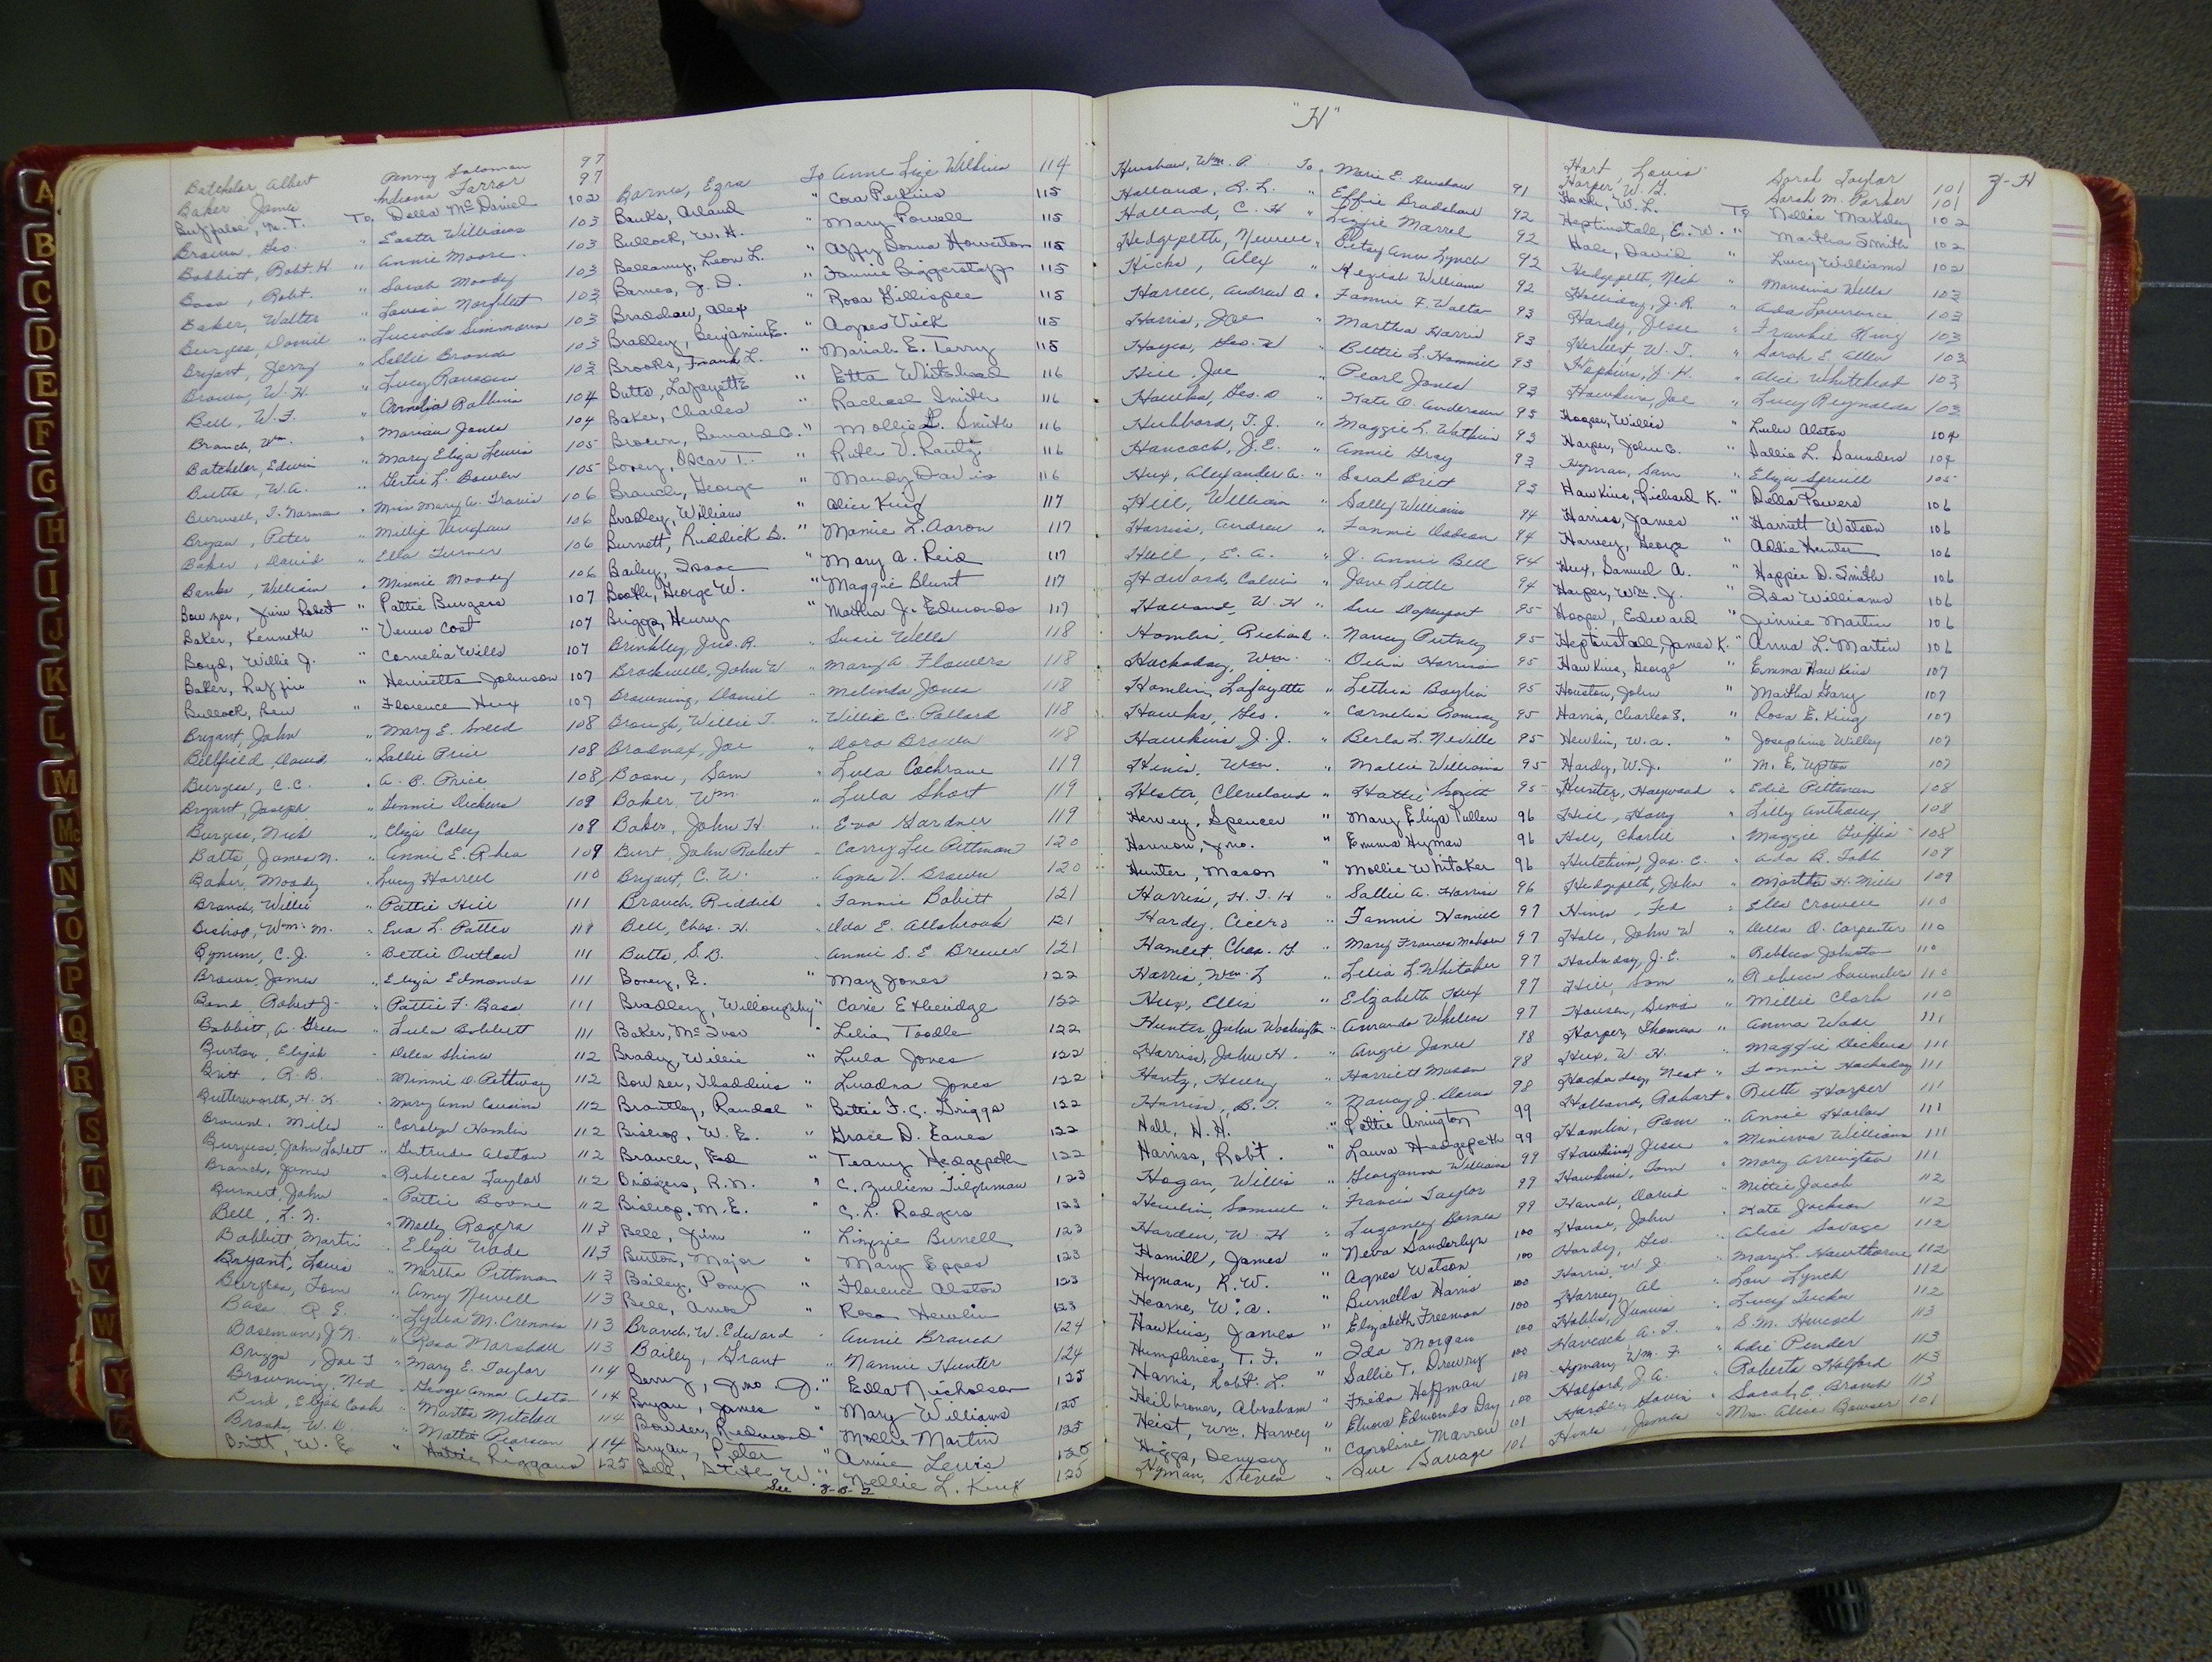 A
B
C
D
E
F
G
H
I
J
K
L
M
Mc
N
O
P
Q
R
S
T
U
V
W
Y
Batchelor, Albert Penny Solomon 97
Baker, James Indiana Farror 97
Buffaloe, M. T. To Della McDaniel 102
Brown, Geo. " Easter Williams 103
Bobbitt, Robt. H. " Annie Moore 103
Bass, Robt. " Sarah Moody 103
Baker, Walter " Louisa Norfleet 103
Burgess, Daniel " Lucinda Simmons 103
Bryant, Jerry " Sallie Branch 103
Brown, W. H. " Lucy Ransom 103
Bell, W. F. " Cornelia Robbins 104
Branch, Wm. " Mariah Jones 104
Batchelor, Edwin " Mary Eliza Lewis 105
Butts, W. A. " Gertie L. Bowen 105
Burwell, T. Norman " Miss Mary A. Travis 106
Bryan, Peter " Millie Vaughan 106
Baker, David " Ella Turner 106
Banks, William " Minnie Moody 106
Bowser, Jim Robert " Pattie Burgess 107
Baker, Kenneth " Venus Cost 107
Boyd, Willie J. " Cornelia Wills 107
Baker, Ruffin " Henrietta Johnson 107
Bullock, Ben " Florence Hux 107
Bryant, John " Mary E. Sneed 108
Bellfield, David " Sallie Price 108
Burgess, C. C. " A. B. Price 108
Bryant, Joseph " Fannie Dickens 109
Burgess, Nick " Eliza Coley 108
Batts, James N. " Annie E. Rhea 109
Baker, Moody " Lucy Harrell 110
Branch, Willie " Pattie Hill 111
Bishop, Wm. M. " Eva L. Patter 111
Bynum, C. J. " Bettie Outlaw 111
Brown, James " Eliza Edmonds 111
Band, Robert J. " Pattie F. Bass 111
Bobbitt, A. Green " Lula Bobbitt 111
Burton, Elijah " Della Shine 112
Britt, R. B. " Minnie D. Pittway 112
Butterworth, H. K. " Mary Ann Cousins 112
Browne, Miles " Carolyn Hamlin 112
Burgess, John Lovett " Gertrude Alston 112
Branch, James " Rebecca Taylor 112
Burnett, John " Pattie Boone 112
Bell, L. N. " Molly Rogers 113
Bobbitt, Martin " Eliza Wade 113
Bryant, Louis " Martha Pittman 113
Burgess, Tom " Amy Newell 113
Bass, R. E. " Lydia M. Crennis 113
Baseman, J. N. " Rosa Marshall 113
Briggs, Joe T " Mary E. Taylor 114
Browning, Ned " George Anna Alston 114
Bird, Elijah Cook " Martha Mitchell 114
Brooks, W. D. " Mattie Pearson 114
Britt, W. E " Hattie Riggans 125
Barnes, Ezra To Anne Liza Wilkins 114
Banks, Arland " Cora Perkins 115
Bullock, W. H. " Mary Powell 115
Bellamy, Leon L. " Affy Donna Howerton 115
Barnes, J. D. " Fannie Biggerstaff 115
Bradshaw, Alex " Rosa Gillispee 115
Bradley, Benjamin E. " Agnes Vick 115
Brooks, Frank L. " Mariah E. Terry 115
Butts, Lafayette " Etta Whitehead 116
Baker, Charles " Rachael Smith 116
Brown, Bernard C. " Mollie L. Smith 116
Boney, Oscar T. " Ruth V. Kautz 116
Branch, George " Mandy Davis 116
Bradley, William " Alice King 117
Burnett, Riddick B. " Mamie L. Aaron 117
Bailey, Isaac " Mary A. Reid 117
Booth, George W. " Maggie Blunt 117
Briggs, Henry " Martha J. Edmonds 117
Brinkley, Jno. R. " Susie Wells 118
Brockwell, John W " Mary A. Flowers 118
Browning, Daniel " Melinda Jones 118
Brough, Willie T. " Willie C. Pollard 118
Brodnax, Joe " Dora Brown 118
Boone, Sam " Lula Cochrane 119
Baker, Wm. " Lula Short 119
Baker, John H " Eva Gardner 119
Burt, John Robert " Carry Lee Pittman 120
Bryant, C. W. " Agnes V. Brown 120
Branch, Riddick " Fannie Bobitt 121
Bell, Chas. H. " Ida E. Allsbrook 121
Butts, S. B. " Annie S. E Brewer 121
Boney, E. " May Jones 122
Bradley, Willoughby " Carie Etheridge 122
Baker, McIver " Lilia Toodle 122
Brady, Willie " Lula Jones 122
Bowser, Thaddius " Luadna Jones 122
Brantley, Randal " Bettie F. C. Griggs 122
Bishop, W. E. " Grace D. Eanes 122
Branch, Ed " Teamy Hedgepeth 122
Bridgers, R. N. " C. Zuliem Tilghman 123
Bishop, M. E. " C. L. Rodgers 123
Bell, Jim " Linzzie Burnell 123
Burton, Major " Mary Epps 123
Bailey, Pony " Florence Alston 123
Bell, Amos " Rosa Hewlin 123
Branch, W. Edward " Annie Branch 124
Bailey, Grant " Nannie Hunter 124
Berry, Jno. J. " Edla Nicholson 125
Bryan, James " Mary Williams 125
Bowser, Redmond " Mollie Martin 125
Bryan, Peter " Annie Lewis 125
Bell, Stith W. " Nellie L. King 125
See Z-B-2
"H"
Henshaw, Wm. P. To Marie E. Henshaw 91
Holland, R. L. " Effie Bradshaw 92
Holland, C. H " Lizzie Marrel 92
Hedgepeth, " Betsy Ann Lynch 92
Hicks, Alex " Keziah Williams 92
Harrell, Andrew D. " Fannie F. Walton 93
Harris, Joe " Martha Harris 93
Hayes, Geo. W " Bettie L. Hammill 93
Hill, Joe " Pearl Jones 93
Hawks, Geo. D " Kate O. Anderson 93
Hubbard, T. J. " Maggie L. Watkins 93
Hancock, J. E. " Annie Gray 93
Hux, Alexander A. " Sarah Britt 93
Hill, William " Sally Williams 94
Harriss, Andrew " Fannie Dobson 94
Hull, E. A. " J. Annie Bell 94
Howard, Calvin " Jane Little 94
Holland, W. H " Sue Davenport 95
Hamlin, Richard " Nancy Putney 95
Hockaday, Wm. " Harrison 95
Hamlin, Lafayette " Lethia Boykin 95
Hawks, Geo. " Cornelia Ramsay 95
Hawkins, J. J. " Berla L. Neville 95
Hines, Wm. " Mallie Williams 95
Hester, Cleveland " Hattie South 95
Hervey, Spencer " Mary Eliza Pullen 96
Harmon, Jno. " Emma Hyman 96
Hunter, Mason " Mollie Whitaker 96
Harriss, H. T. H " Sallie A. Harriss 96
Hardy, Cicero " Fannie Hamill 97
Hamlet, Chas. G " Mary Frances Mabson 97
Harris, Wm. L " Lelia L. Whitaker 97
Hux, Ellis " Elizabeth Hux 97
Hunter, John Washington " Amanda Whiless 97
Harriss, John H. " Angie Jones 98
Hautz, Henry " Harriett Mason 98
Harriss, B. T. " Nancy J. Davis 98
Hall, H. H. " Pattie Arrington 99
Harriss, Robt. " Laura Hedgepeth 99
Hogan, Willis " Georganna Williams 99
Hewlin, Samuel " Francis Taylor 99
Harden, W. H " Luganey Barnes 99
Hamill, James " Neva Sanderlyn 100
Hyman, R. W. " Agnes Watson 100
Hearne, W. A. " Burnella Harris 100
Hawkins, James " Elizabeth Freeman 100
Humphries, T. F. " Ida Morgan 100
Harris, Robt. L. " Sallie T. Drewry 100
Heilbroner, Abraham " Freida Hoffman 100
Heist, Wm. Harvey " Elnora Edmonds Day 100
Higgs, Dempsy " Caroline Marrow 101
Hyman, Steven " Sue Savage 101
Z-H
Hart, Louis Sarah Taylor 101
Harper, W. G. Sarah M. Parker 101
W. L. To Nellie Markley 102
Heptinstall, E. W. " Martha Smith 102
Hale, David " Lucy Williams 102
Hedgepeth, Nick " Mansina Wells 103
Holliday, J. R. " Ada Lawrence 103
Hardy, Jesse " Frankie King 103
Herbert, W. T. " Sarah E. Allen 103
Hopkins, J. H. " Alice Whitehead 103
Hawkins, Joe " Lucy Reynolds 103
Hooper, Willis " Lula Alston 104
Harper, John C. " Sallie L. Saunders 104
Hyman, Sam " Eliza Spruill 105
Hawkins, Richard K. " Della Powers 106
Harriss, James " Harriett Watson 106
Harvey, George " Addie Hunter 106
Hux, Samuel A. " Happie D. Smith 106
Harper, Wm. J. " Ida Williams 106
Hooper, Edward " Jinnie Martin 106
Heptinstall, James K. " Anna L. Martin 106
Hawkins, George " Emma Hawkins 107
Houston, John " Martha Gary 107
Harris, Charles S. " Rosa E. King 107
Hewlin, W. A. " Josephine Willey 107
Hardy, W. J. " M. E. Upton 107
Hunter, Haywood " Edie Pittman 108
Hill, Harry " Lilly Anthony 108
Hill, Charlie " Maggie Joffis 108
Hutchins, Jas. C. " Ada R. Tabb 109
Hedgepeth, John " Martha H. Mills 109
Hines, Fed " Ella Crowell 110
Hale, John W " Della O. Carpenter 110
Hockaday, J. E. " Rebecca Johnston 110
Hill, Sam " Rebecca Saunders 110
Hansen, Sims " Millie Clark 110
Harper, Thomas " Anna Wade 111
Hux, W. H. " Maggie Dickens 111
Hockaday, Neat " Fannie Hockaday 111
Holland, Robart " Ruth Harper 111
Hamlin, Pom " Annie Harlow 111
Hawkins, Jesse " Minerva Williams 111
Hawkins, Tom " Mary Arrington 111
David " Mittie Jacob 112
House, John " Kate Jackson 112
Hardy, Geo. " Alice Savage 112
Harris, W. J. " Mary L. Hawthorne 112
Harvey, Al " Lou Lynch 112
Hobbs, Junius " Lucy Tucker 112
Hancock, A. F. " S. M. Hancock 113
Hyman, Wm. F. " Adie Pender 113
Halford, J. A. " Roberta Halford 113
Harder, " Sarah E. Branch 113
Hines, James " Mrs. Alice Bowser 101